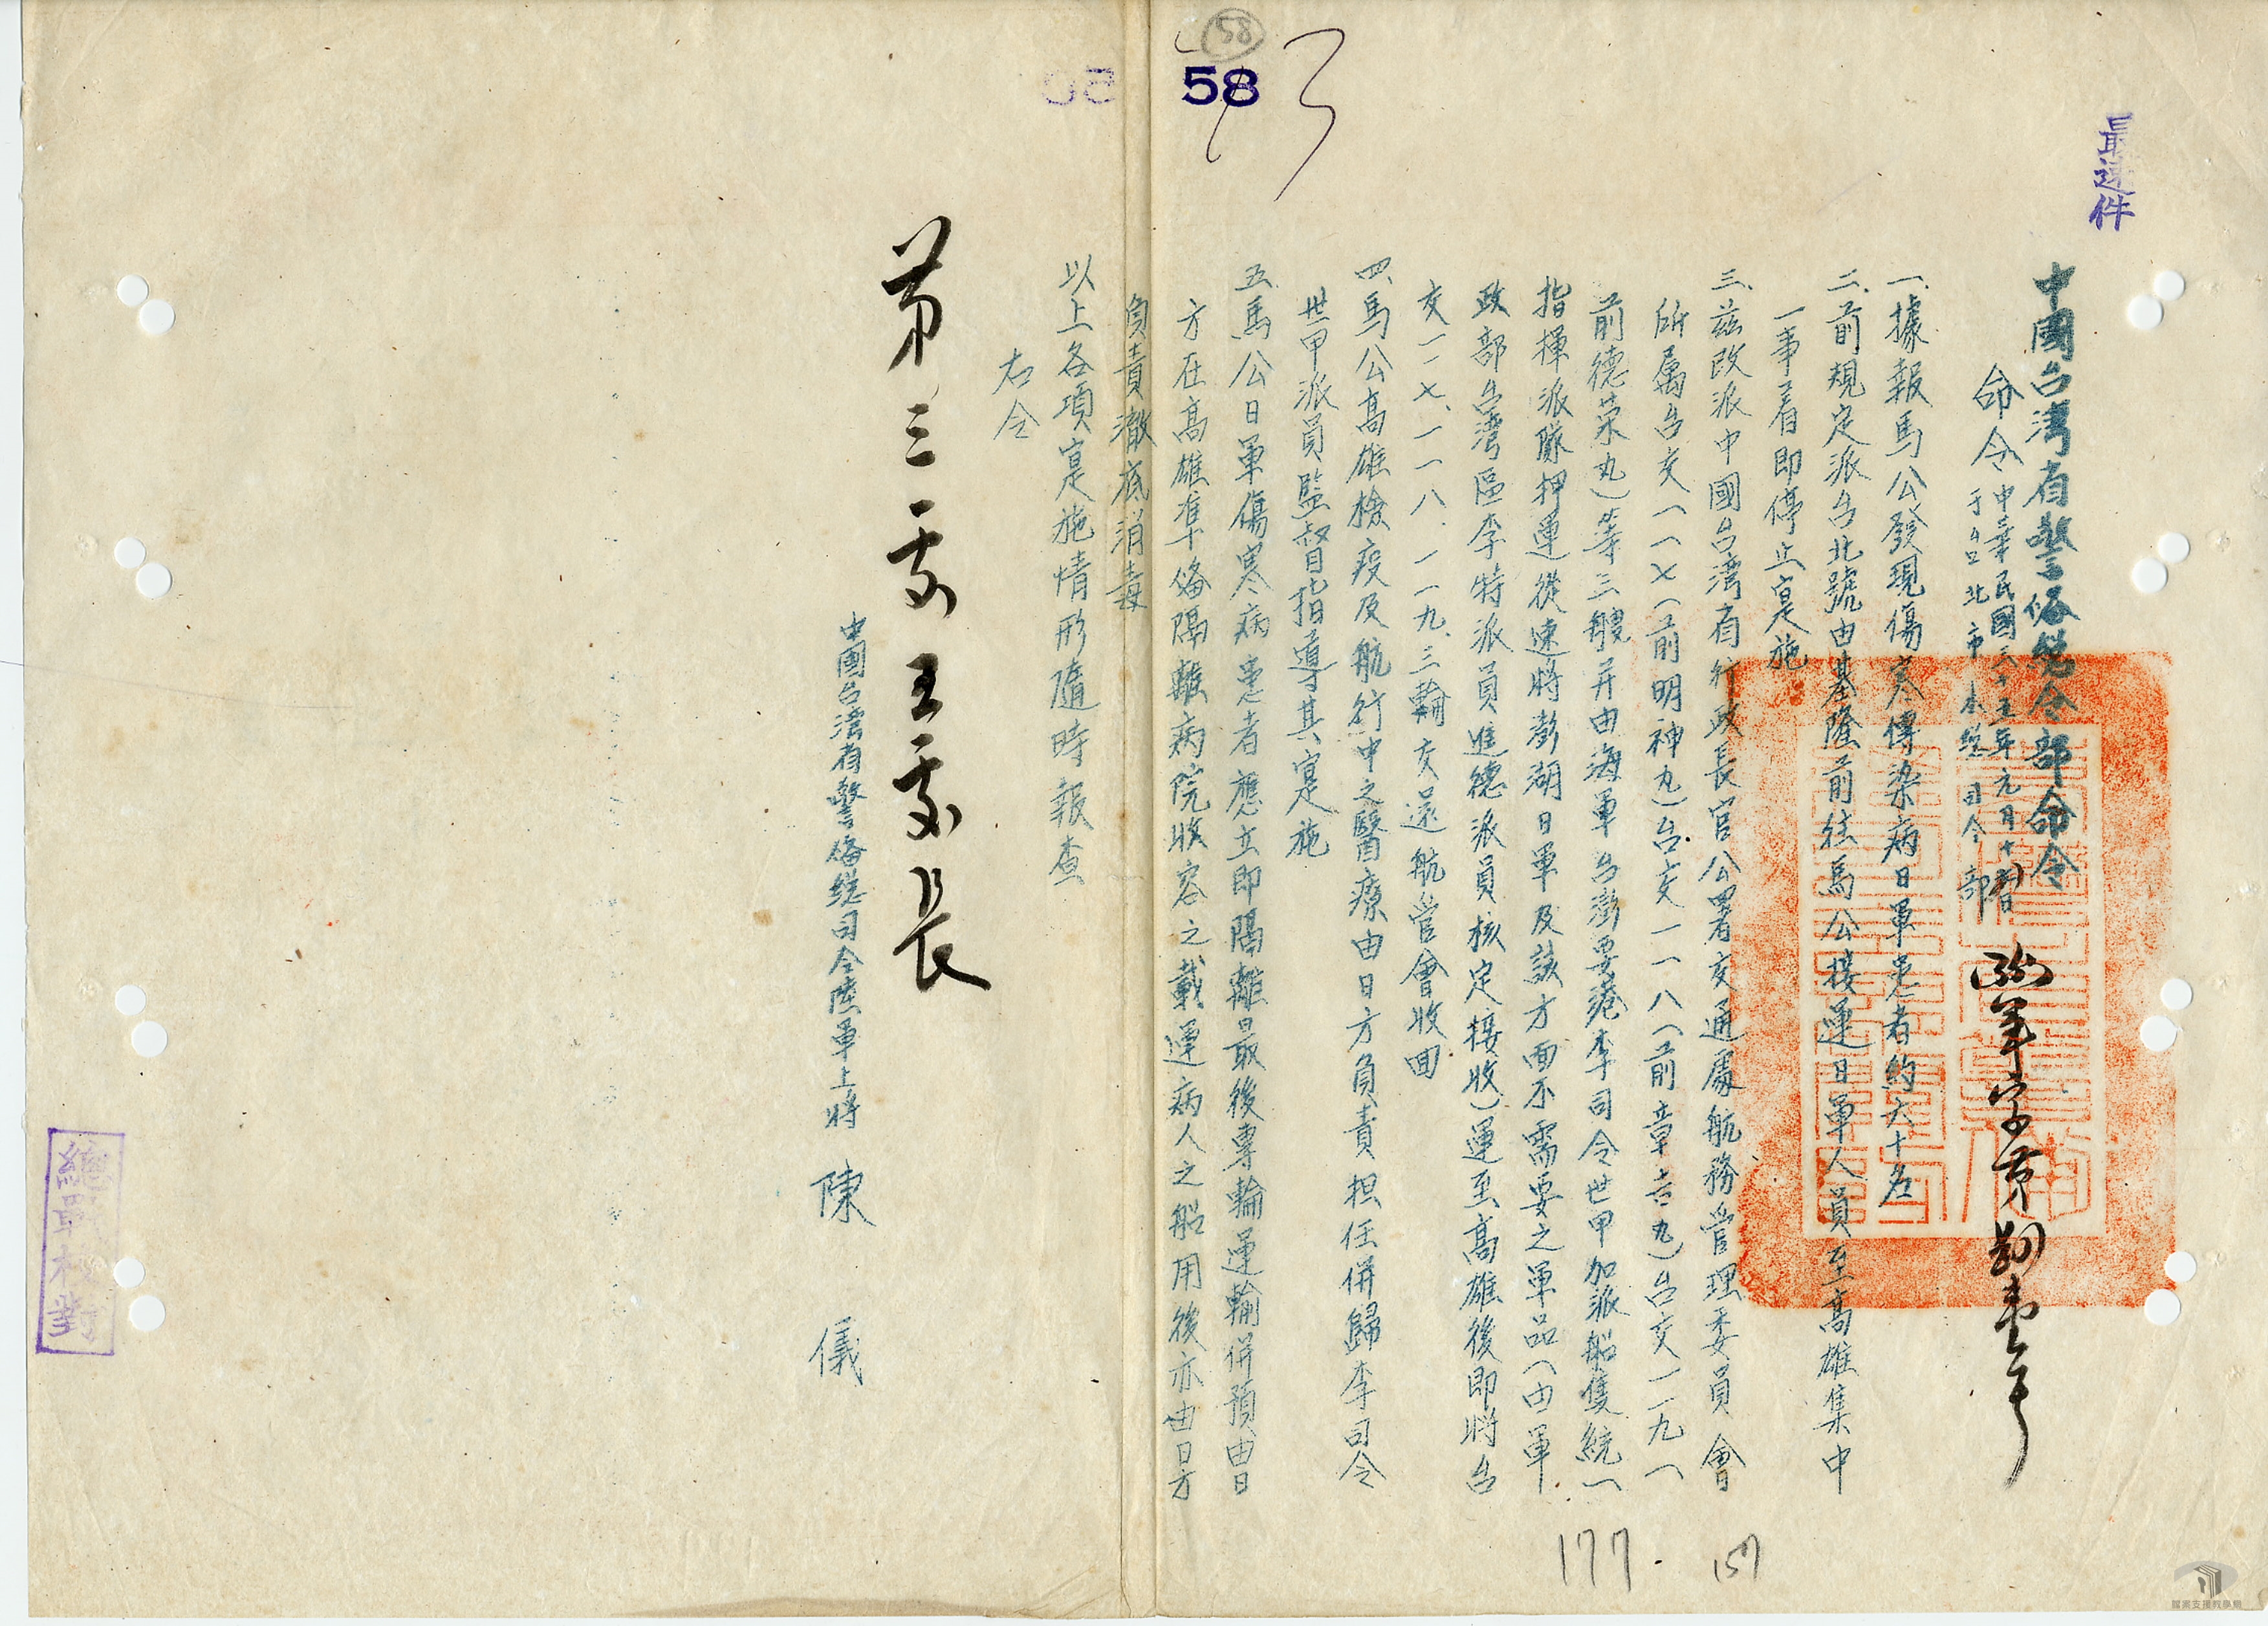 58
58
最速件
中國台湾省警俻総司令部命令
命令
中華民國三十五年元月十
于台北市本総司令部
一、據報馬公發現傷寒傳染病日軍患者約六十名
二、前規定派台北號由基隆前往馬公接運日軍人員至高雄集中
一事着即停止寔施
三、茲改派中國台湾省行政長官公署交通處航務管理委員會
所属台交一一七(前明神丸)台交一一八(前章吉丸)台交一一九(
前德荣丸)等三艘并由海軍台澎要港李司令世甲加派船隻統一
指揮派隊押運從速將澎湖日軍及該方面不需要之軍品(由軍
政部台湾區李特派員進德派員核定接收)運至高雄後即將台
交一一七、一一八、一一九、三輪交還航管會收回
四、馬公高雄檢疫及航行中之醫療由日方負責担任併歸李司令
世甲派員監督指導其寔施
五、馬公日軍傷寒病患者應立即隔離最後專輪運輸併預由日
方在高雄準俻隔離病院收容之載運病人之船用後亦由日方
負責澈底消毒
以上各項寔施情形隨時報查
右令
第三處王處長
中國台湾省警俻総司令陸軍上將 陳 儀
總戰校對
177.
157
檔案支援教學網